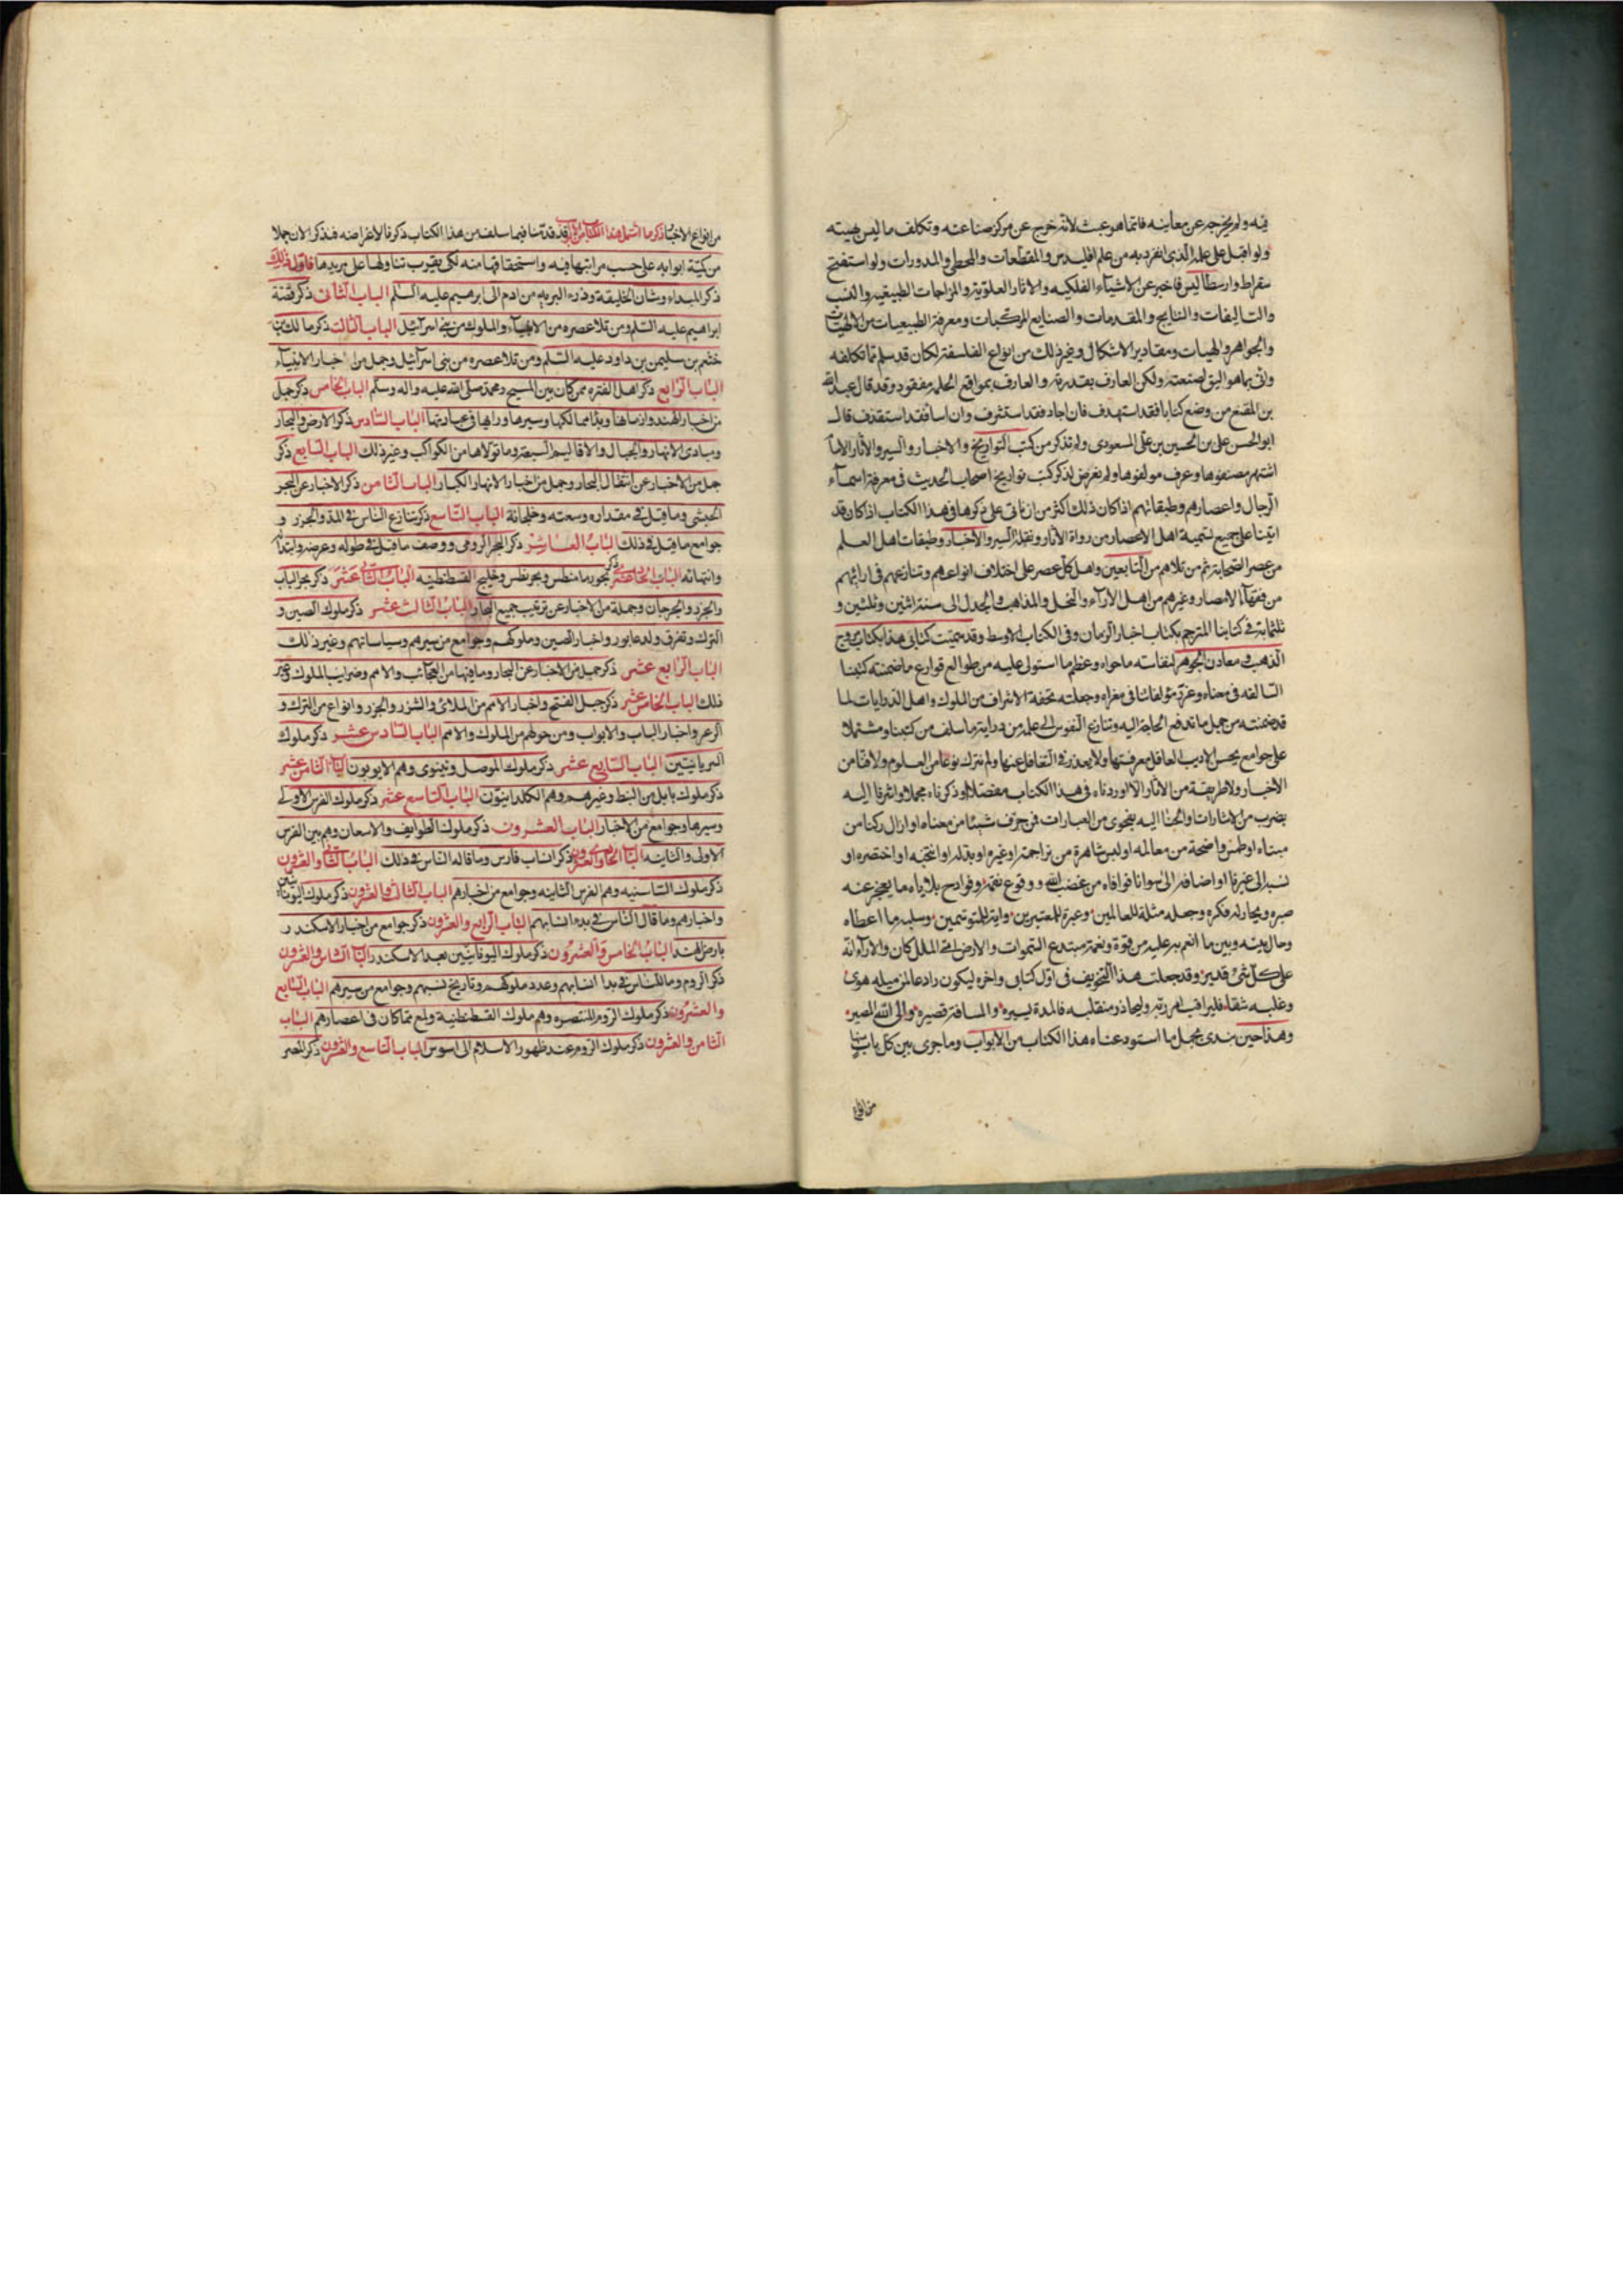 فيه ولم يخرجه عن معاينه فانما هو عبث لانه خرج عن مركز صناعته وتكلف ما ليس مهنته
ولو اقبل على علمه الذى انفرد به من علم اقليدس والمقطعات والمجسطى والمدورات ولو استفتح
سقراط وارسطاليس فاخبر عن الاشياء الفلكيه والاثار العلويه والمزاجات الطبيعيه والنسب
والتاليفات والنتايج والمقدمات والصنايع المركبات ومعرفة الطبيعيات من الالهيات
والجواهر والهيات ومقادير الاشكال وغير ذلك من انواع الفلسفة لكان قد سلم مما تكلفه
واتى بما هو اليق لصنعته ولكن العارف بقدره والعارف بمواقع الخلل مفقود وقد قال عبد الله
بن المقفع من وضع كتابا فقد استهدف فان اجاد فقد استشرف وان اسا فقد استقذف قال
ابو الحسن على بن الحسين بن على المسعودى ولم نذكر من كتب التواريخ والاخبار والسير والاثار الا ما
اشتهر مصنفوها وعرف مولفوها ولم نعرض لذكر كتب تواريخ اصحاب الحديث فى معرفة اسماء
الرجال واعصارهم وطبقاتهم اذ كان ذلك اكثر من ان ناتى على ذكرها فى هذا الكتاب اذ كان قد
اتينا على جميع تسمية اهل الاعصار من رواة الاثار ونقلة السير والاخبار وطبقات اهل العلم
من عصر الصحابة ثم من تلاهم من التابعين واهل كل عصر على اختلاف انواعهم وتنازعهم فى ارائهم
من فقهاء الامصار وغيرهم من اهل الاراء والنحل والمذاهب والجدل الى سنة اثنين وثلثين و
ثلثماية فى كتابنا المترجم بكتاب اخبار الزمان وفى الكتاب الاوسط وقد سميت كتابى هذا بكتاب مروج
الذهب ومعادن الجوهر لنفاسته ما حواه وعظم ما استولى عليه من طوالع قوارع ما ضمنته كتبنا
السالفه فى معناه وغرر مؤلفاتنا فى مغزاه وجعلته تحفة الاشراف من الملوك واهل الدرايات لما
قد ضمنته من جمل ما تدفع الحاجة اليه وتنازع النفوس الى علمه من دراية ما سلف من كتبنا ومشتملا
على جوامع يحسن الاديب العاقل معرفتها ولا يعذر فى التغافل عنها ولم نترك نوعا من العلوم ولا فنا من
الاخبار ولا طريقة من الاثار الا اوردناه فى هذا الكتاب مفصلا او ذكرناه مجملا او اشرنا اليه
بضرب من الاشارات والحنا اليه بفحوى من العبارات فمن حرف شيئا من معناه او ازال ركنا من
مبناه او طمس واضحة من معالمه او لبس شاهرة من تراجمه او غيره او بدله او انتخبه او اختصره او
نسبه الى غيرنا او اضافه الى سوانا فوافاه من غضب الله ووقوع نقمه وفوادح بلاياه ما يعجز عنه
صبره ويحار له فكره وجعله مثلة للعالمين وعبرة للمعتبرين واية للمتوسمين وسلبه ما اعطاه
وحال بينه وبين ما انعم به عليه من قوة ونعمة مبتدع السموات والارض من اى الملل كان والاراء انه
على كل شئ قدير وقد جعلت هذا التخويف فى اول كتابى واخره ليكون رادعا لمن ميله هوى
وغلبه شقاء فليراقب امر ربه وليحاذر منقلبه فالمدة يسيره والمسافة قصيره والى الله المصير
وهذا حين نبدى بجمل ما استودعناه هذا الكتاب من الابواب وما جرى بين كل باب منها
من انواع
من انواع الاخبار ذكر ما اشتمل هذا الكتاب من الابواب قد قدمنا فيما سلف من هذا الكتاب ذكرنا لاغراضه فنذكر الان جملا
من كمية ابوابه على حسب مراتبها فيه واستحقاقها منه لكى يقرب تناولها على مريدها فاول ذلك
ذكر المبداء وشان الخليقة وذرء البريه من ادم الى ابرهيم عليه السلم الباب الثانى ذكر قصة
ابراهيم عليه السلم ومن تلا عصره من الانبياء والملوك من بنى اسرائيل الباب الثالث ذكر ملك
بن سليمن بن داود عليه السلم ومن تلا عصره من بنى اسرائيل وجمل من اخبار الانبياء
الباب الرابع ذكر اهل الفتره ممن كان بين المسيح ومحمد صلى الله عليه واله وسلم الباب الخامس ذكر جمل
من اخبار الهند وازمانها وبدا ممالكها وسيرها وراها فى عباداتها الباب السادس ذكر الارض والبحار
ومبادى الانهار والجبال والاقاليم السبعة وما تولاها من الكواكب وغير ذلك الباب السابع ذكر
جمل من الاخبار عن انتقال البحار وجمل من اخبار الانهار الكبار الباب الثامن ذكر الاخبار عن البحر
الحبشى وما قيل فى مقداره وسعته وخلجانة الباب التاسع ذكر تنازع الناس فى المد والجزر و
جوامع ما قيل فى ذلك الباب العاشر ذكر البحر الرومى ووصف ما قيل فى طوله وعرضه وابتدائه
وانتهائه الباب الحادى عشر ذكر بحر مانطس وبحر نطس وخليج القسطنطينيه الباب الثانى عشر ذكر بحر الباب
والخزر والجرجان وجملة من الاخبار عن ترتيب جميع البحار الباب الثالث عشر ذكر ملوك الصين و
الترك وتفرق ولد عابور واخبار الصين وملوكهم وجوامع من سيرهم وسياساتهم وغير ذلك
الباب الرابع عشر ذكر جمل من الاخبار عن البحار وما فيها من العجائب والامم ومراتب الملوك وغير
ذلك الباب الخامس عشر ذكر جبل الفتح واخبار الامم من اللان والسرر والخزر وانواع من الترك و
البرغر واخبار الباب والابواب ومن حولهم من الملوك والامم الباب السادس عشر ذكر ملوك
السريانيين الباب السابع عشر ذكر ملوك الموصل ونينوى وهم الاثوريون الباب الثامن عشر
ذكر ملوك بابل من النبط وغيرهم وهم الكلدانيون الباب التاسع عشر ذكر ملوك الفرس الاولى
وسيرها وجوامع من الاخبار الباب العشرون ذكر ملوك الطوايف والاشغان وهم بين الفرس
الاولى والثانيه الباب الحادى والعشرون ذكر انساب فارس وما قاله الناس فى ذلك الباب الثانى والعشرون
ذكر ملوك الساسنيه وهم الفرس الثانيه وجوامع من اخبارهم الباب الثالث والعشرون ذكر ملوك اليونانيين
واخبارهم وما قال الناس فى بدء انسابهم الباب الرابع والعشرون ذكر جوامع من اخبار الاسكندر
بارض الهند الباب الخامس والعشرون ذكر ملوك اليونانيين بعد الاسكندر الباب السادس والعشرون
ذكر الروم وما للناس فى بدا انسابهم وعدد ملوكهم وتاريخ نسبهم وجوامع من سيرهم الباب السابع
والعشرون ذكر ملوك الروم المتنصره وهم ملوك القسطنطنية ولمع مما كان فى اعصارهم الباب
الثامن والعشرون ذكر ملوك الروم عند ظهور الاسلام الى الباب التاسع والعشرون ذكر مصر